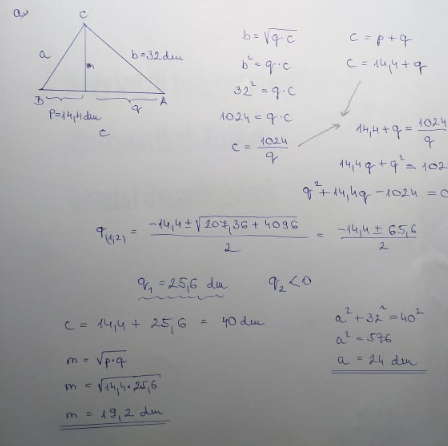 a)
C
a
m
b=32dm
B
q
A
p=14,4dm
c
b=√q·c
b²=q·c
32²=q·c
1024=q·c
c=1024/q
c=p+q
c=14,4+q
14,4+q=1024/q
14,4q+q²=102
q²+14,4q-1024=0
q(1,2)=(-14,4±√207,36+4096)/2=(-14,4±65,6)/2
q₁=25,6 dm q₂<0
c=14,4+25,6=40dm
m=√p·q
m=√14,4·25,6
m=19,2 dm
a²+32²=40²
a²=576
a=24 dm